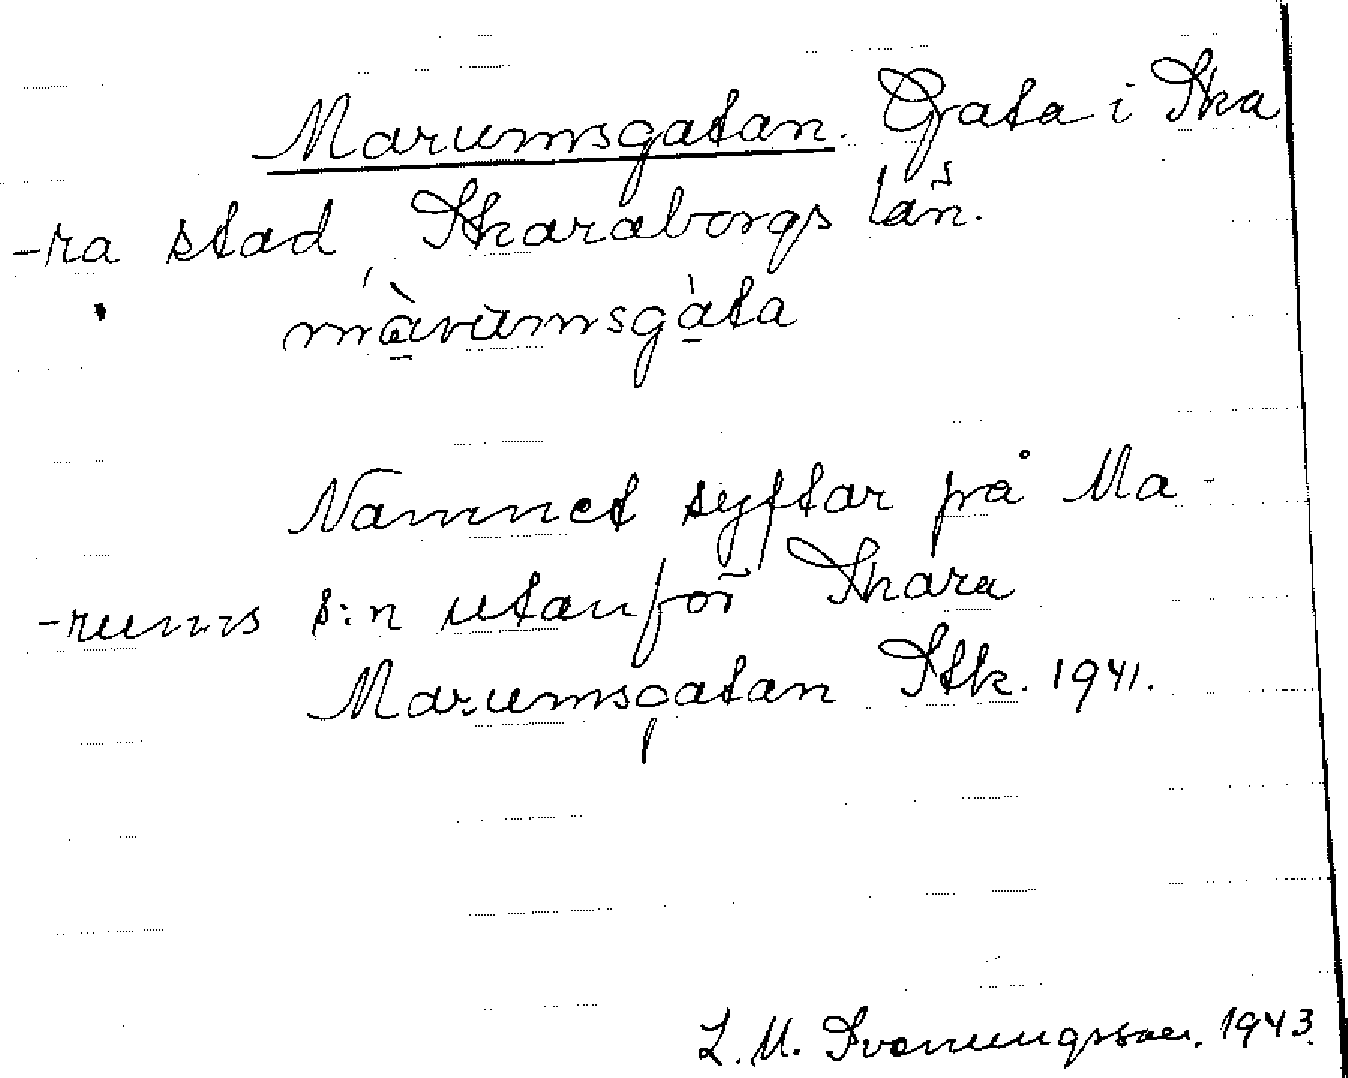 Marumsgatan. Gata i Ska
-ra stad, Skaraborgs län.
màrumsgàta
Namnet syftar på Ma-
-rums s:n utanför Skara
Marumsgatan Stk. 1941.
L. M. Svenungsson. 1943.